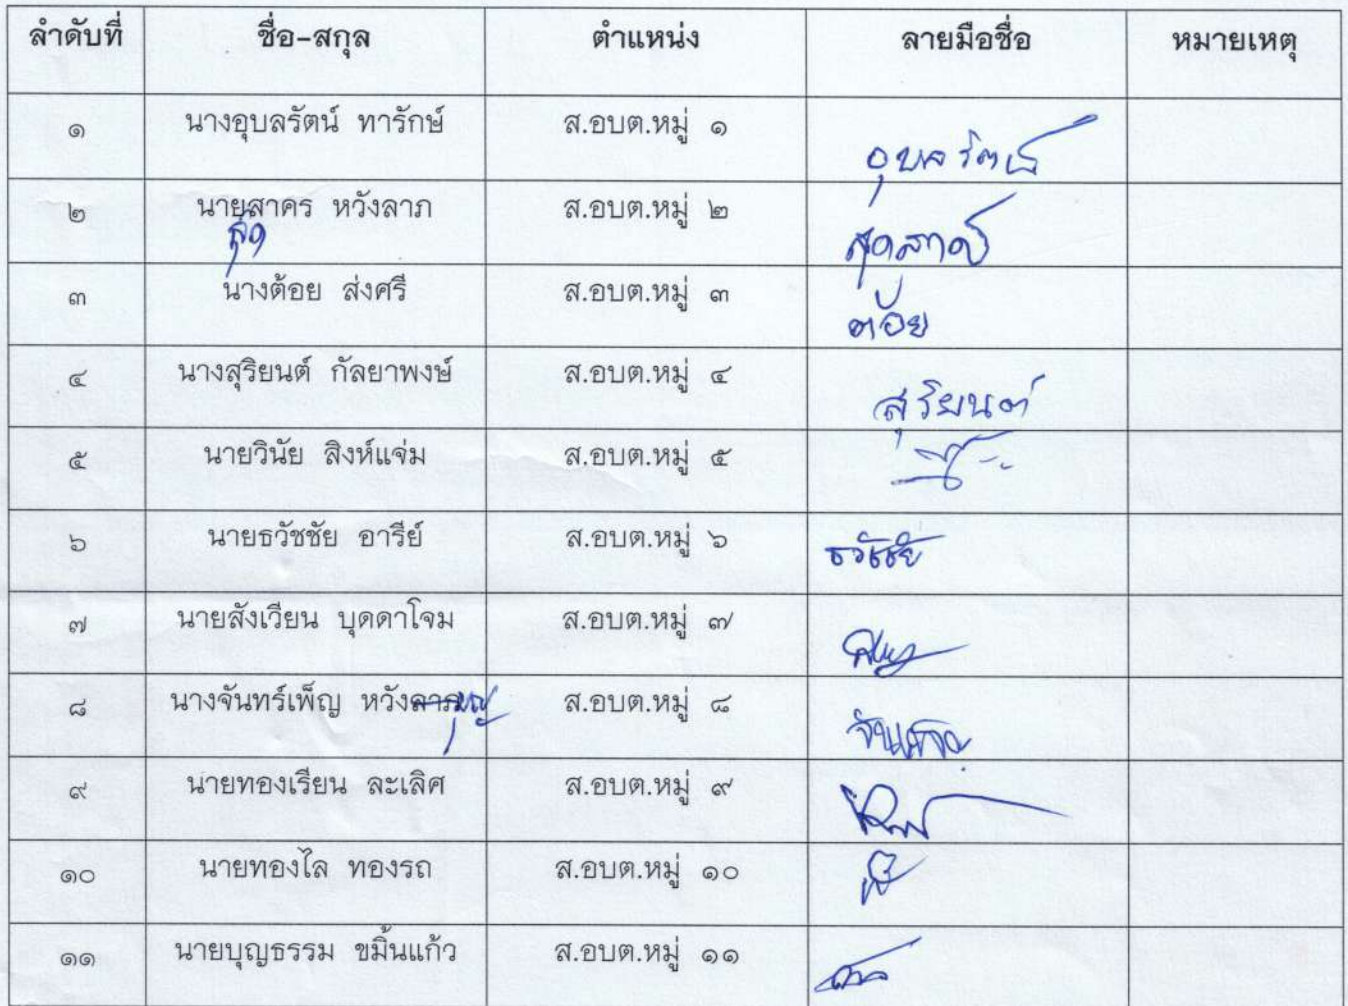 ลำดับที่ ชื่อ-สกุล ตำแหน่ง ลายมือชื่อ หมายเหตุ
๑ นางอุบลรัตน์ ทารักษ์ ส.อบต.หมู่ ๑ อุบลรัตน์
๒ นายสาคร หวังลาภ ส.อบต.หมู่ ๒
สุด
๓ นางต้อย ส่งศรี ส.อบต.หมู่ ๓ ต้อย
๔ นางสุริยนต์ กัลยาพงษ์ ส.อบต.หมู่ ๔ สุริยนต์
๕ นายวินัย สิงห์แจ่ม ส.อบต.หมู่ ๕
๖ นายธวัชชัย อารีย์ ส.อบต.หมู่ ๖ ธวัชชัย
๗ นายสังเวียน บุดดาโจม ส.อบต.หมู่ ๗
๘ นางจันทร์เพ็ญ หวังลาภ ส.อบต.หมู่ ๘
๙ นายทองเรียน ละเลิศ ส.อบต.หมู่ ๙
๑๐ นายทองไล ทองรถ ส.อบต.หมู่ ๑๐
๑๑ นายบุญธรรม ขมิ้นแก้ว ส.อบต.หมู่ ๑๑